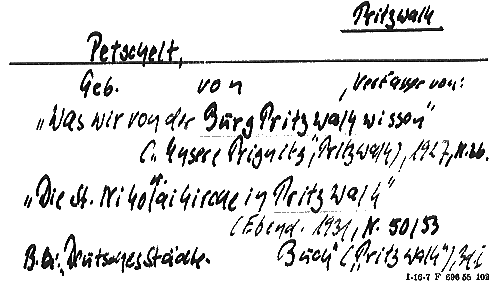 Pritzwalk
Petschelt,
Geb. von , Verfasser von:
„Was wir von der Burg Pritzwalk wissen"
(„Unsere Prignitz", Pritzwalk), 1927, N. 26.
„Die St. Nikolaikirche in Pritzwalk"
(Ebend. 1931, N. 50/53
Deutsches Städte- Buch" („Pritzwalk"),
I-16-7 F 696 55 102